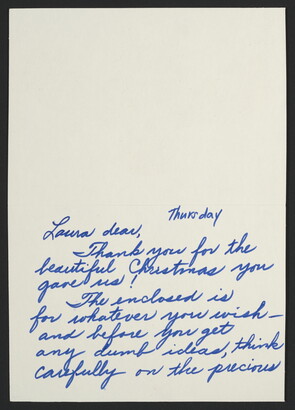 Thursday
Laura dear,
Thank you for the
beautiful Christmas you
gave us!
The enclosed is
for whatever you wish—
and before you get
any dumb ideas, think
carefully on the precious